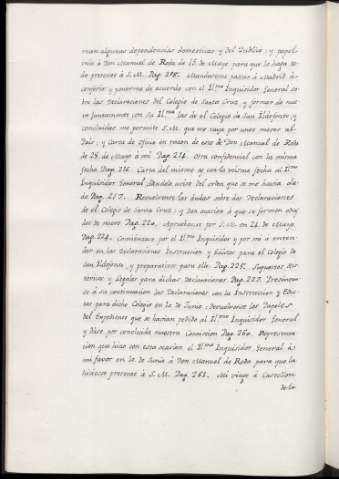 rrian algunas dependencias domesticas y del Publico, y supli-
cio à Don Manuel de Roda de 15 de Mayo para que lo haga to-
do presente à S. M. Pag. 208. Mandaronme pasar à Madrid à
conferir y ponerme de acuerdo con el Il.mo Inquisidor General so-
bre las Declaraciones del Colegio de Santa Cruz, y formar de nue-
vo juntamente con su Il.ma las de el Colegio de San Ildefonso, y
concluidas me permite S. M. que me vaya por unos meses al
Pais, y Carta de Oficio en razon de esto de Don Manuel de Roda
de 28 de Mayo à mi Pag. 214. Otra confidencial con la misma
fecha Pag. 216. Carta del mismo de con la misma fecha al Il.mo
Inquisidor General dandole aviso del orden que se me havia da-
do Pag. 217. Resuelvense las dudas sobre las Declaraciones
de el Colegio de Santa Cruz, y dan ocasion à que se formen algu-
nas de nuevo Pag. 220. Apruebalas por S. M. en 21 de Mayo
Pag. 224. Comienzase por el Il.mo Inquisidor y por mi à enten-
der en las Declaraciones Instruccion y Edictos para el Colegio de
San Ildefonso, y preparativos para ello. Pag. 225. Supuestos his-
toricos y legales para dichas Declaraciones Pag. 227.
se à su continuacion las Declaraciones con la Instruccion y Edic-
tos para dicho Colegio en 1.o de Junio: devuelvense los Papeles
del Expediente que se havian pedido al Il.mo Inquisidor General
y dase por concluida nuestra Comision Pag. 260. Representa-
cion que hizo con esta ocasion el Il.mo Inquisidor General à
mi favor en 1.o de Junio à Don Manuel de Roda para que la
hiciesse presente à S. M. Pag. 261. Mi viage à Castellon
de la